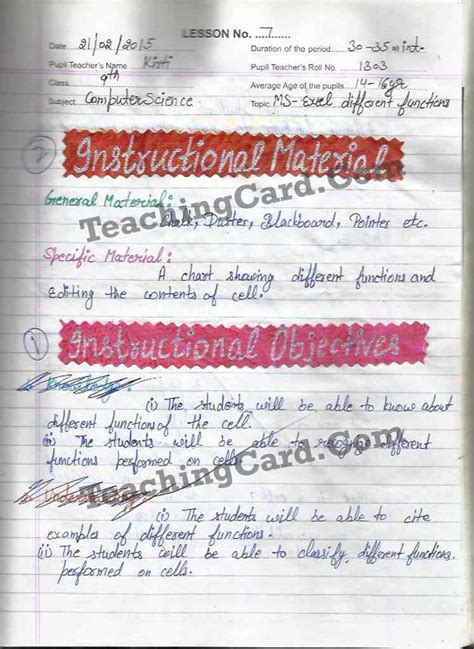 LESSON No. ....7......
Date 21/02/2015 Duration of the period 30-35 mint.
Pupil Teacher's Name Kirti Pupil Teacher's Roll No. 1303
Class 9th Average Age of the pupils 14-16 yr
Subject Computer Science Topic MS-Exel different functions
2 Instructional Material
General Material:
Chalk, Duster, Blackboard, Pointer etc.
TeachingCard.Com
Specific Material:
A chart showing different functions and
Editing the contents of cell.
1 Instructional Objectives
Knowledge:
(i) The students will be able to know about
different functions of the cell.
(ii) The students will be able to recognize different
functions performed on cells.
TeachingCard.Com
Understanding
(i) The students will be able to cite
examples of different functions.
(ii) The students will be able to classify different functions
performed on cells.